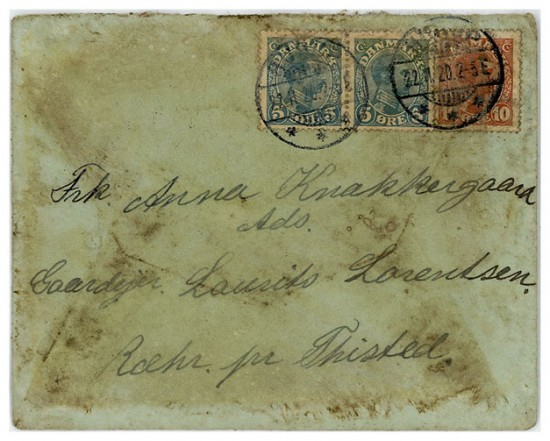 DANMARK DANMARK
5 ØRE 5 5 ØRE 5 10
22.11.20.2-5E
Frk Anna Knakkergaard
Ads.
Gaardejer Laurits Lorentsen,
Ræhr. pr Thisted.